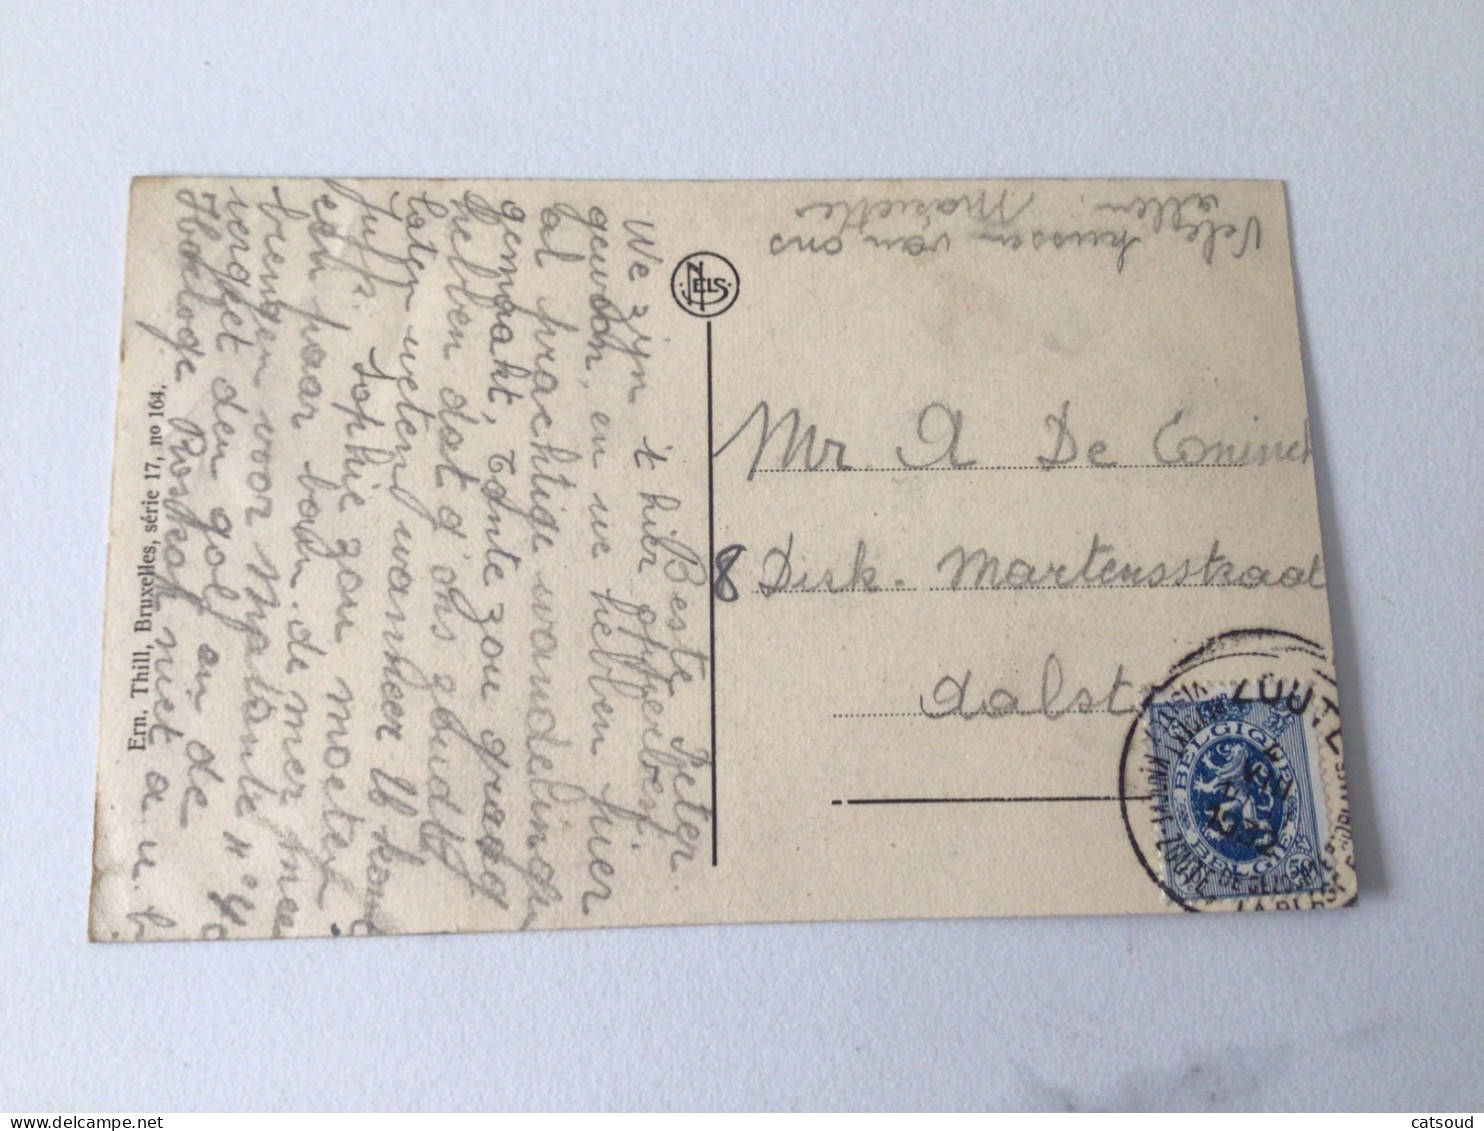 Beste Peter.
We zijn 't hier
gewoon, en we hebben hier
al prachtige wandeling
gemaakt, Tante zou graag
hebben dat g' ons zoudt
laten weten wanneer U komt
Juffr. Sophie zou moeten
een paar bain de mer mee
brengen voor Matante
vergeet den golf en de
Horloge niet a u b
Ern. Thill, Bruxelles, série 17, no 164.
NELS
Vele kussen van ons
allen. Mariette
Mr. A. De Coninck
8 Dirk. Martensstraat
Aalst
ZOUTE
BELGIQUE
BELGIE
50
catsoud